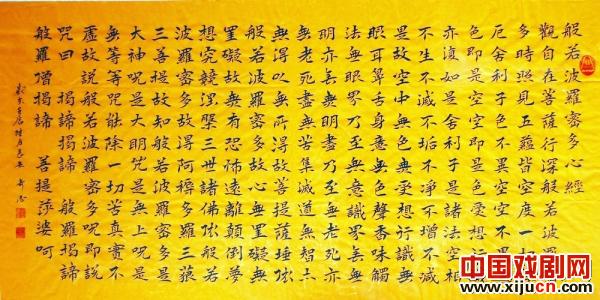 般若波羅密多心經
觀自在菩薩行深般若波羅密
多時照見五蘊皆空度一切苦
厄舍利子色不異空空不異色
色即是空空即是色受想行識
亦復如是舍利子是諸法空相
不生不滅不垢不淨不增不減
是故空中無色無受想行識無
眼耳鼻舌身意無色聲香味觸
法無眼界乃至無意識界無無
明亦無無明盡乃至無老死亦
無老死盡無苦集滅道無智亦
無得以無所得故菩提薩埵依
般若波羅密多故心無罣礙無
罣礙故無有恐怖遠離顛倒夢
想究竟涅槃三世諸佛依般若
波羅密多故得阿耨多羅三藐
三菩提故知般若波羅密多是
大神咒是大明咒是無上咒是
無等等咒能除一切苦真實不
虛故說般若波羅密多咒即說
咒曰 揭諦揭諦 般羅揭諦
般羅僧揭諦 菩提莎婆呵
中国戏剧网
www.xijucn.com